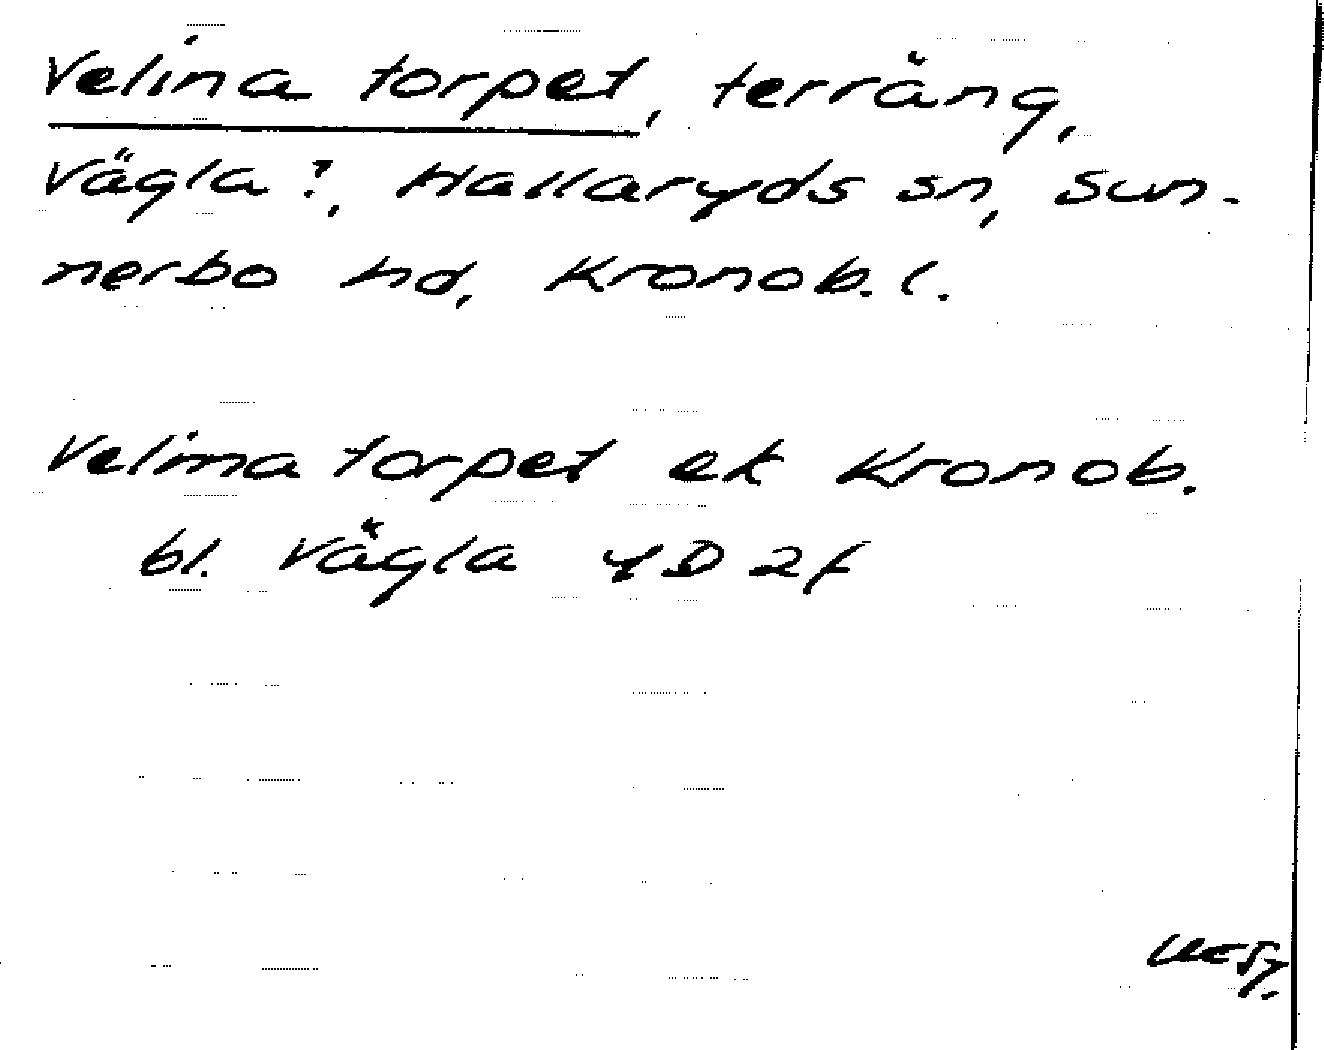 Velina torpet, terräng,
Vägla?, Hallaryds sn, Sun-
nerbo hd, Kronob. l.
Velina torpet ek Kronob.
bl. Vägla 4D 2f